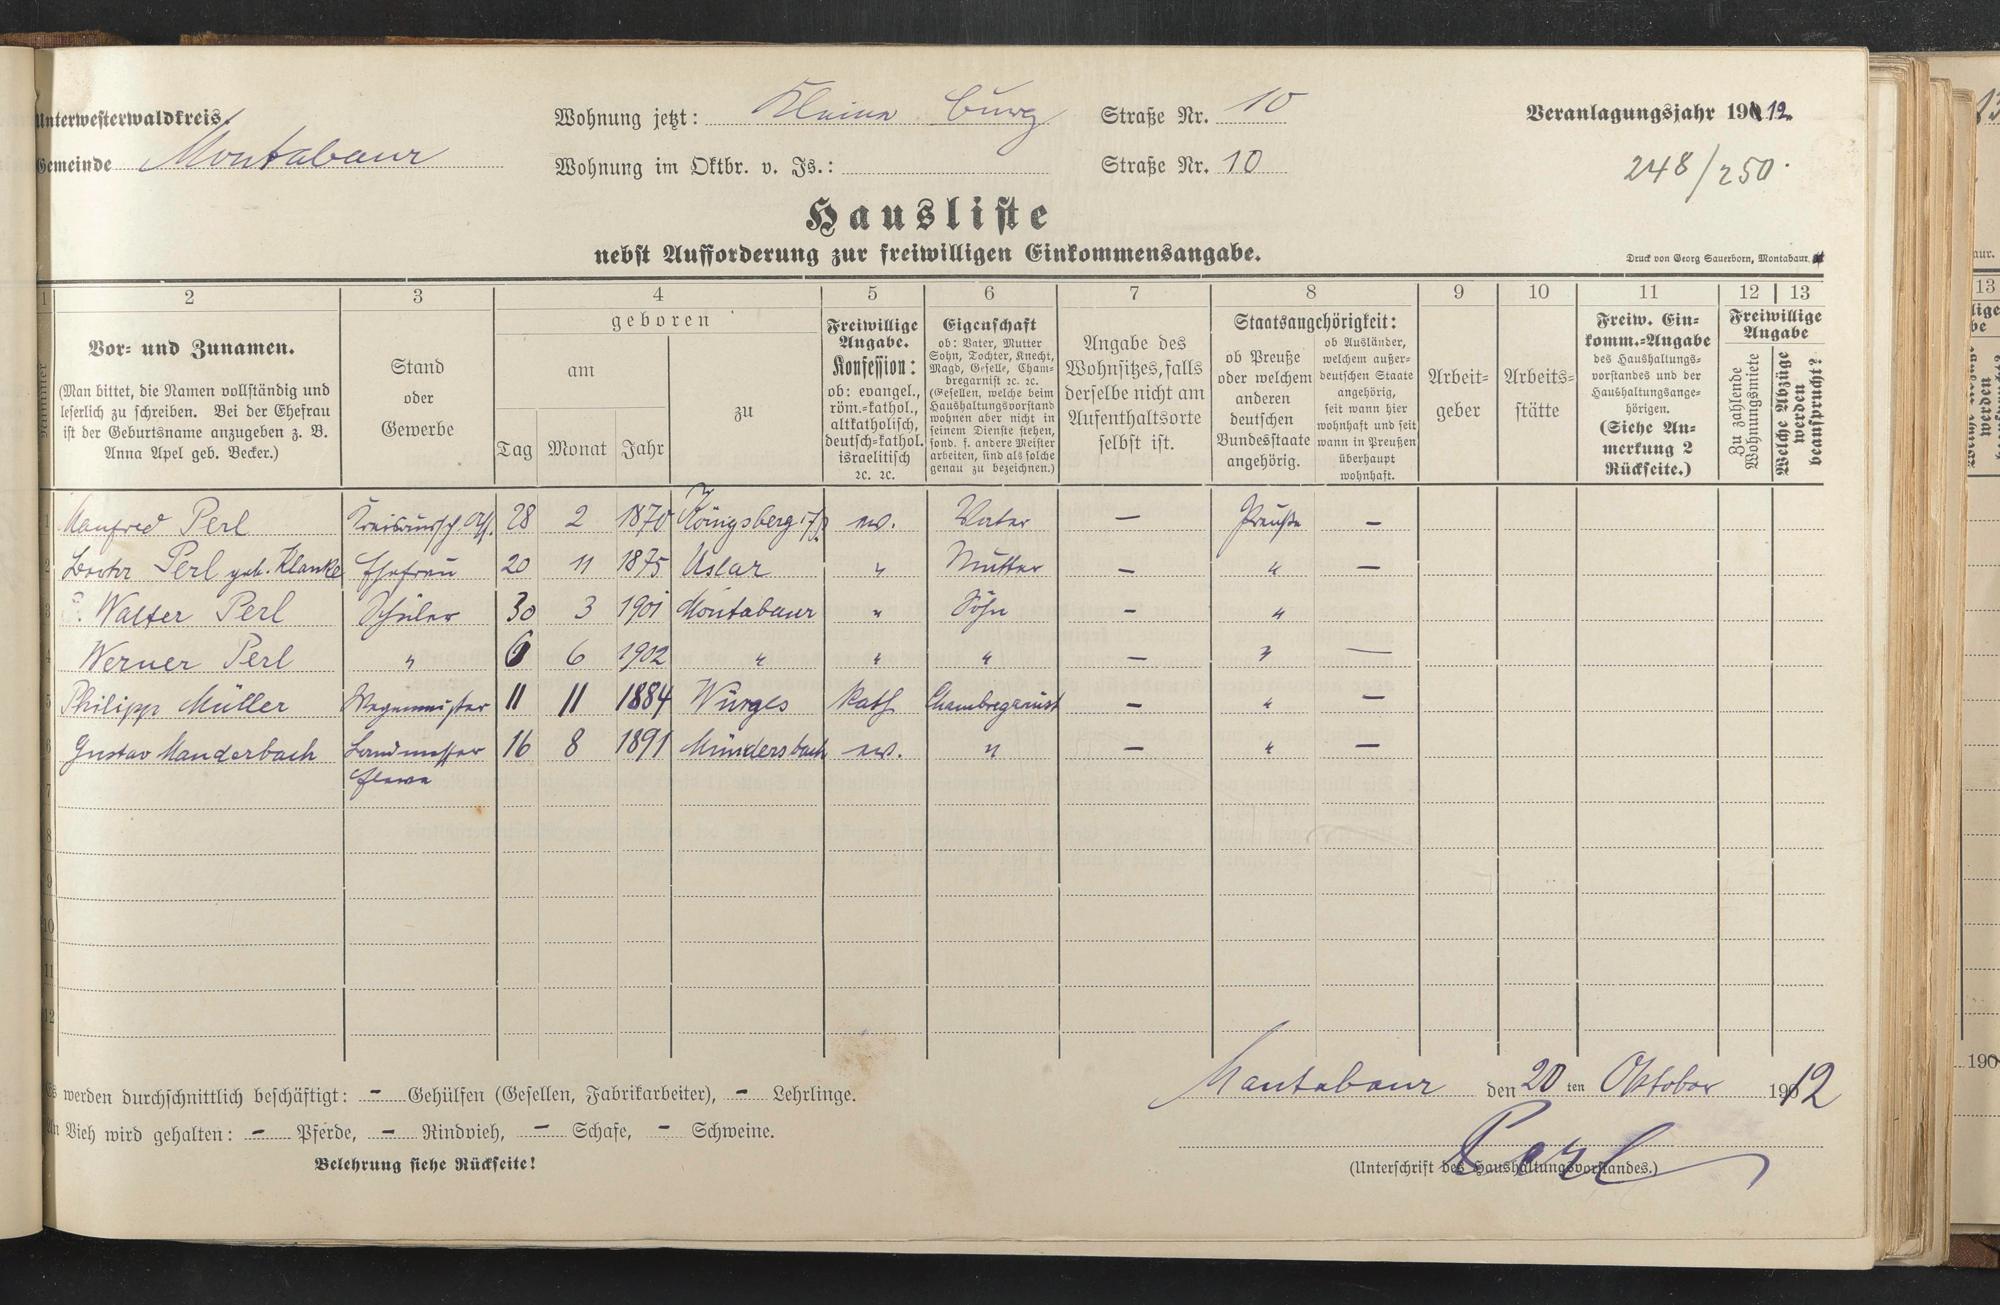 Unterwesterwaldkreis.
Gemeinde Montabaur
Wohnung jetzt: Kleine Burg Straße Nr. 10
Wohnung im Oktbr. v. Js.: Straße Nr. 10
Veranlagungsjahr 1912.
248/250.
Hausliste
nebst Aufforderung zur freiwilligen Einkommensangabe.
Druck von Georg Sauerborn, Montabaur.
1 2 3 4 5 6 7 8 9 10 11 12 13
Nummer
Vor- und Zunamen.
(Man bittet, die Namen vollständig und
leserlich zu schreiben. Bei der Ehefrau
ist der Geburtsname anzugeben z. B.
Anna Apel geb. Becker.)
Stand
oder
Gewerbe
geboren
am
Tag Monat Jahr
zu
Freiwillige
Angabe.
Konfession:
ob: evangel.,
röm.-kathol.,
altkatholisch,
deutsch-kathol.
israelitisch
ꝛc. ꝛc.
Eigenschaft
ob: Vater, Mutter
Sohn, Tochter, Knecht,
Magd, Geselle, Cham-
bregarnist ꝛc. ꝛc.
(Gesellen, welche beim
Haushaltungsvorstand
wohnen aber nicht in
seinem Dienste stehen,
sond. f. andere Meister
arbeiten, sind als solche
genau zu bezeichnen.)
Angabe des
Wohnsitzes, falls
derselbe nicht am
Aufenthaltsorte
selbst ist.
Staatsangehörigkeit:
ob Preuße
oder welchem
anderen
deutschen
Bundesstaate
angehörig.
ob Ausländer,
welchem außer-
deutschen Staate
angehörig,
seit wann hier
wohnhaft und seit
wann in Preußen
überhaupt
wohnhaft.
Arbeit-
geber
Arbeits-
stätte
Freiw. Ein-
komm.-Angabe
des Haushaltungs-
vorstandes und der
Haushaltungsange-
hörigen.
(Siehe An-
merkung 2
Rückseite.)
Freiwillige
Angabe
Zu zahlende
Wohnungsmiete
Welche Abzüge
werden
beansprucht?
1 Manfred Perl 28 2 1870 Königsberg i/Pr. ev. Vater — Preuße —
2 Perl geb. Klanke Ehefrau 20 11 1875 Uslar " Mutter — " —
3 Walter Perl Schüler 30 3 1901 Montabaur " Sohn — "
4 Werner Perl " 6 6 1902 " " " — " —
5 Philipp Müller Wegemeister 11 11 1884 Würges Kath Chambregarnist — " —
6 Gustav Manderbach Landmesser 16 8 1891 Mündersbach ev. " — " —
Eleve
7
8
9
10
11
12
Es werden durchschnittlich beschäftigt: – Gehülfen (Gesellen, Fabrikarbeiter), – Lehrlinge.
An Vieh wird gehalten: – Pferde, – Rindvieh, – Schafe, – Schweine.
Belehrung siehe Rückseite!
Montabaur den 20 ten Oktober 1912
Perl
(Unterschrift des Haushaltungsvorstandes.)